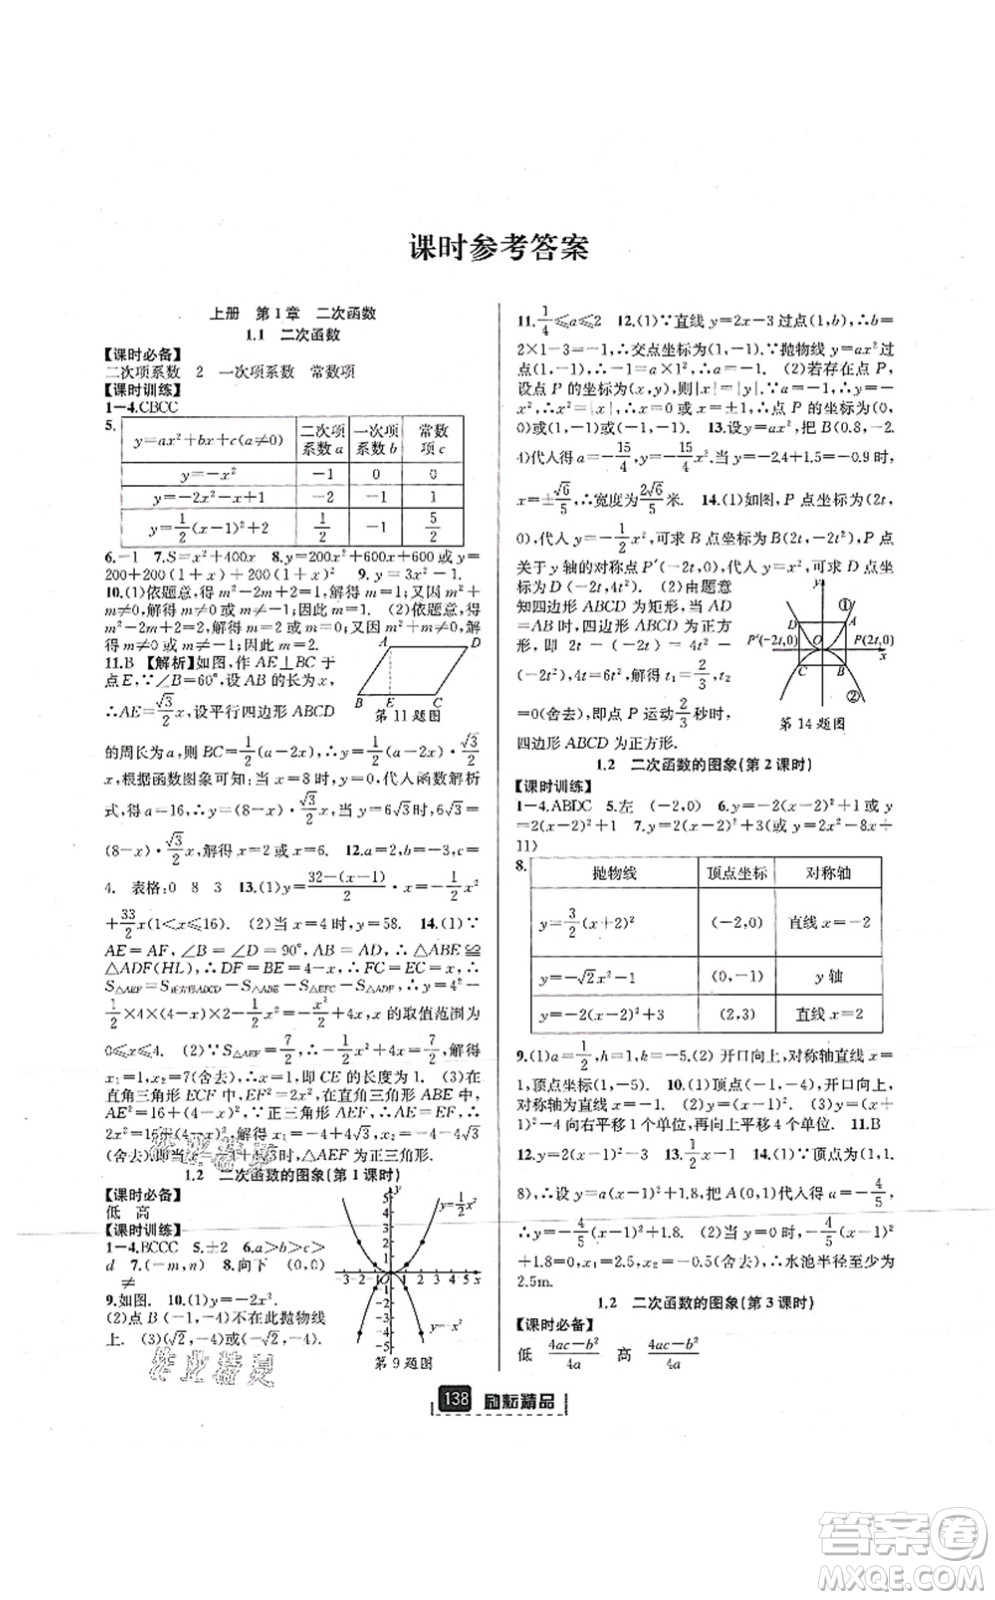 课时参考答案
上册 第1章 二次函数
1.1 二次函数
【课时必备】
二次项系数 2 一次项系数 常数项
【课时训练】
1—4.CBCC
5.
y=ax²+bx+c(a≠0) 二次项系数a 一次项系数b 常数项c
y=-x² -1 0 0
y=-2x²-x+1 -2 -1 1
y=1/2(x-1)²+2 1/2 -1 5/2
6.-1 7.S=x²+400x 8.y=200x²+600x+600或y=
200+200(1+x)+200(1+x)² 9.y=3x²-1.
10.(1)依题意,得m²-2m+1=1;又因为
m²-m≠0,解得m=2. (2)依题意,得
m²-2m+2=2,解得m=2或m=0;又因为
m²-m≠0,解得m≠0或m≠1;因此m=2.
11.B 【解析】如图,作AE⊥BC于
点E,∵∠B=60°,设AB的长为x,
∴AE=√3/2 x,设平行四边形ABCD
A D B E C
第11题图
的周长为a,则BC=1/2(a-2x),∴y=1/2(a-2x)·√3/2
x,根据函数图象可知:当x=8时,y=0,代入函数解析
式,得a=16,∴y=(8-x)·√3/2 x,当y=6√3时,6√3=
(8-x)·√3/2 x,解得x=2或x=6. 12.a=2,b=3,c=
4. 表格:0 8 3 13.(1)y=32-(x-1)/2·x=-1/2x²
+33/2x(1<x≤16). (2)当x=4时,y=58. 14.(1)∵
AE=AF,∠B=∠D=90°,AB=AD,∴△ABE≌
△ADF(HL),∴DF=BE=4-x,∴FC=EC=x,∴y=
S△AEF=S正方形ABCD-S△ABE-S△EFC-S△ADF=4²-
1/2×4×(4-x)×2-x²/2=-x²/2+4x,x的取值范围为
0≤x≤4. (2)∵S△AEF=7/2,∴-x²/2+4x=7/2,解得
x₁=1,x₂=7(舍去),即CE的长度为1. (3)在
直角三角形ECF中,EF²=2x²,在直角三角形ABE中,
AE²=16+(4-x)²,∵正三角形AEF中,AE=EF,∴
2x²=16+(4-x)²,解得x₁=-4+4√3,x₂=-4-4√3
(舍去),∴当x=-4+4√3时,△AEF为正三角形.
1.2 二次函数的图象(第1课时)
【课时必备】
低 高
【课时训练】
1—4.BCCC 5.±2 6.a>b>c>
d 7.(-m,n) 8.向下 (0,0)
≠
9.如图. 10.(1)y=-2x².
(2)点B(-1,-4)不在此抛物线
上. (3)(√2,-4)或(-√2,-4).
y=1/2x²
y=-x²
-3-2-1 O 1 2 3 4 5 x
第9题图
11.1/4≤a≤2 12.(1)∵直线y=2x-3过点(1,b),∴b=
2×1-3=-1,∴交点坐标为(1,-1).∵抛物线y=ax²过
点(1,-1),∴-1=a×1²,∴a=-1. (2)若存在点P,
设点P的坐标为(x,y),则|x|=|y|.∵a=-1,∴y=
-x²,∴x²=|x|,∴x=0或x=±1,∴点P的坐标为(0,
0)或(1,-1)或(-1,-1). 13.设y=ax²,把B(0.8,-2.
4)代入得a=-15/4,∴y=-15/4x²,∵当y=-0.9时,
x=±√6/5,∴宽度为2√6/5米. 14.(1)如图,P点坐标为(2t,
0),代入y=-1/2x²,∴y=-2t²,∴A(2t,-2t²).∵P点
关于y轴的对称点P′(-2t,0),代入y=x²,∴y=4t²,
∴点D(-2t,4t²). (2)由题意
知四边形ABCD为矩形,当AD
=AB时,四边形ABCD为正方
形,即2t-(-2t)=4t²-
(-2t²),解得t₁=2/3,t₂
=0(舍去),即点P运动2/3秒时,
四边形ABCD为正方形.
y ① D A P′(-2t,0) O P(2t,0) x C B ②
第14题图
1.2 二次函数的图象(第2课时)
【课时训练】
1—4.ABDC 5.左 (-2,0) 6.y=-2(x-2)²+1或y
=2(x-2)²+1 7.y=-2(x-2)²+3(或y=2x²-8x+
11)
8.
抛物线 顶点坐标 对称轴
y=3/2(x+2)² (-2,0) 直线x=-2
y=-√2x²-1 (0,-1) y轴
y=-2(x-2)²+3 (2,3) 直线x=2
9.(1)a=1/2,h=1,k=-5.(2)开口向上,对称轴直线x=
1,顶点坐标为(1,-5). 10.(1)顶点(-1,-4),开口向上,
对称轴为直线x=-1. (2)y=(x-1)². (3)向
右平移1个单位,再向上平移4个单位. 11.B
12.y=2(x-1)²-2 13.-1/2 14.(1)∵顶点为(1,1.
8),∴设y=a(x-1)²+1.8,把A(0,1)代入得a=-4/5,
∴y=-4/5(x-1)²+1.8. (2)当y=0时,-4/5(x-1)²
+1.8=0,x₁=2.5,x₂=-0.5(舍去),∴水池半径至少
2.5m.
1.2 二次函数的图象(第3课时)
【课时必备】
低 4ac-b²/4a 高 4ac-b²/4a
作业精灵
138 励耘精品
答案卷
MXQE.COM